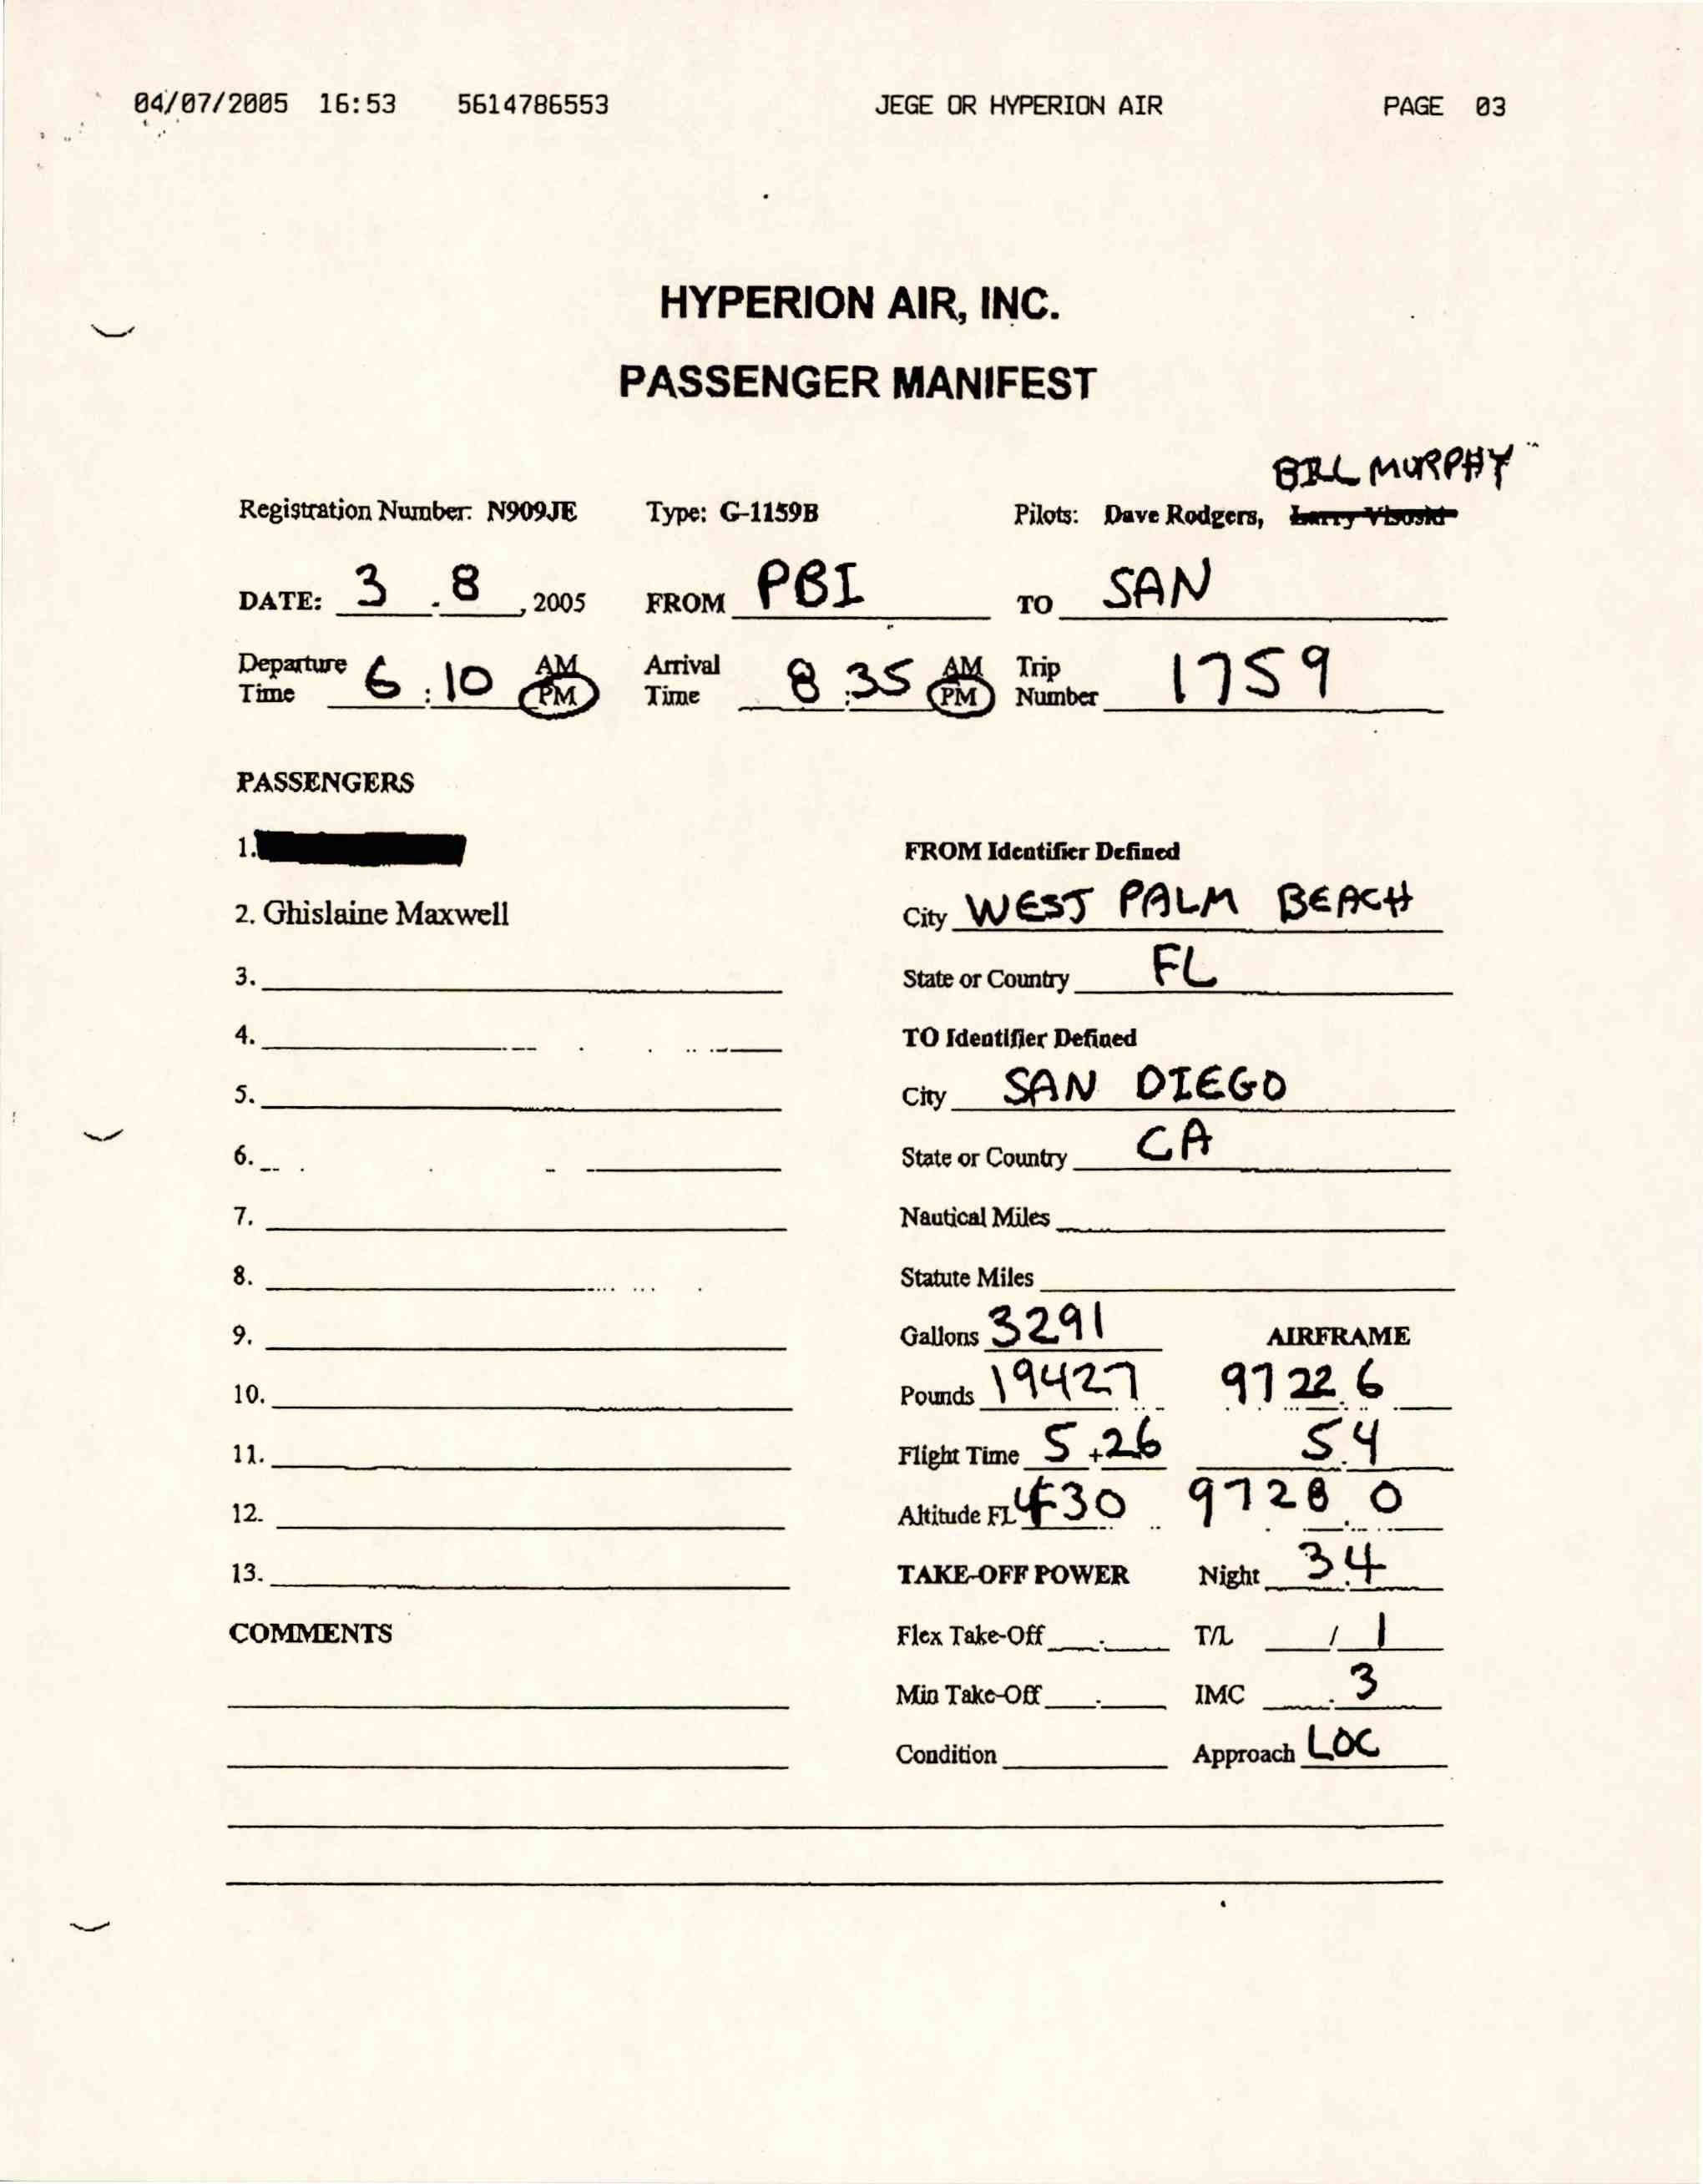 04/07/2005 16:53 5614786553 JEGE OR HYPERION AIR PAGE 03
HYPERION AIR, INC.
PASSENGER MANIFEST
BILL MURPHY
Registration Number: N909JE Type: G-1159B Pilots: Dave Rodgers, Larry Visoski
DATE: 3 . 8 , 2005 FROM PBI TO SAN
Departure Time 6 : 10 AM PM Arrival Time 8 : 35 AM PM Trip Number 1759
PASSENGERS
1.
FROM Identifier Defined
2. Ghislaine Maxwell City WEST PALM BEACH
3. State or Country FL
4. TO Identifier Defined
5. City SAN DIEGO
6. State or Country CA
7. Nautical Miles
8. Statute Miles
9. Gallons 3291 AIRFRAME
10. Pounds 19427 9722.6
11. Flight Time 5 + 26 5.4
12. Altitude FL 430 9728.0
13. TAKE-OFF POWER Night 3.4
COMMENTS Flex Take-Off . T/L / 1
Min Take-Off . IMC . 3
Condition Approach LOC